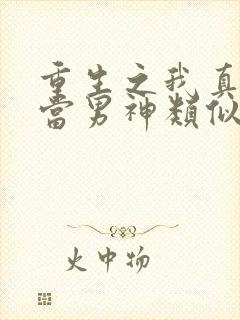 重生之我真
當男神類似
火中物